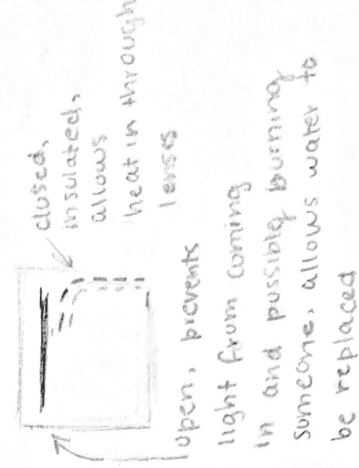 closed,
insulated,
allows
heat in through
lenses
open, prevents
light from coming
in and possibly burning
someone, allows water to
be replaced